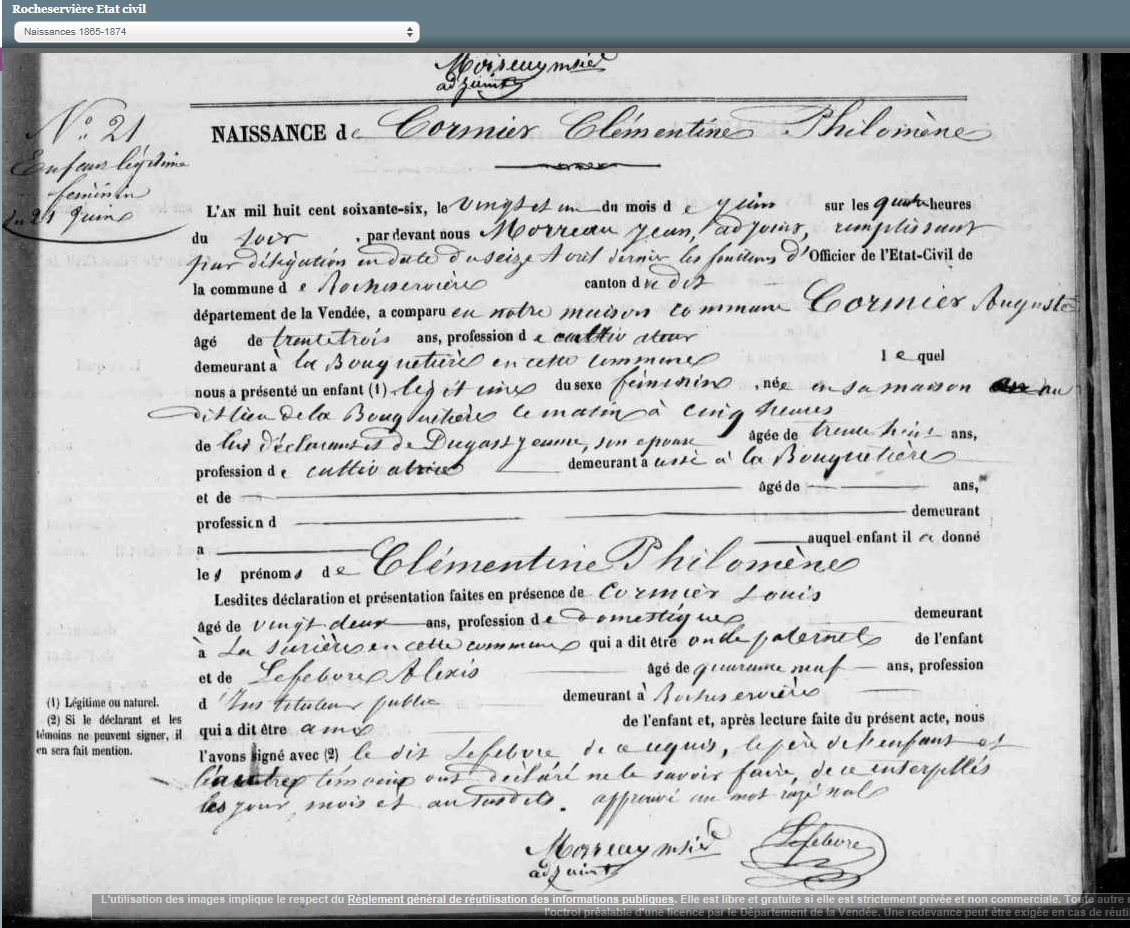 Rocheservière Etat civil
Naissances 1865-1874
adjoint
N.° 21
Enfant légitime
feminin
du 21 Juin
NAISSANCE de Cormier Clémentine Philomène
L'AN mil huit cent soixante-six, le vingt et un du mois de Juin sur les quatre heures
du soir, par devant nous Morreau Jean, adjoint, remplissant
par délégation en date du seize Avril dernier les fonctions d'Officier de l'Etat-Civil de
la commune de Rocheservière canton du dit
département de la Vendée, a comparu en notre maison commune Cormier Auguste
âgé de trente trois ans, profession de cultivateur
demeurant à la Bouquetière en cette commune lequel
nous a présenté un enfant (1) légitime du sexe féminin, née en sa maison au
dit lieu de la Bouquetière ce matin à cinq heures
de lui déclarant et de Dugast Jeanne, son epouse âgée de trente huit ans,
profession de cultivatrice demeurant à aussi à la Bouquetière
et de âgé de ans,
profession d demeurant
a auquel enfant il a donné
les prénoms de Clémentine Philomène
Lesdites déclaration et présentation faites en présence de Cormier Louis
âgé de vingt deux ans, profession de domestique demeurant
à La Surière en cette commune qui a dit être oncle paternel de l'enfant
et de Lefebvre Alexis âgé de quarante neuf ans, profession
d'Instituteur public demeurant à Rocheservière
qui a dit être ami de l'enfant et, après lecture faite du présent acte, nous
l'avons signé avec (2) le dit Lefebvre de ce requis, le père de l'enfant et
l'autre temoin ont déclaré ne le savoir faire, de ce interpellés
les jour, mois et an susdits. approuvé un mot rayé nul
(1) Légitime ou naturel.
(2) Si le déclarant et les
témoins ne peuvent signer, il
en sera fait mention.
Lefebvre
adjoint
L'utilisation des images implique le respect du Règlement général de réutilisation des informations publiques. Elle est libre et gratuite si elle est strictement privée et non commerciale. Toute autre
l'octroi préalable d'une licence par le Département de la Vendée. Une redevance peut être exigée en cas de réutil